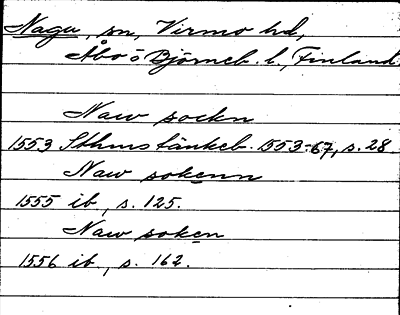 Nagu, sn, Virmo hd,
Åbo o Björneb. l., Finland
Naw sockn
1553 Sthms tänkeb. 1553-67, s. 28.
Naw sokenn
1555 ib., s. 125.
Naw soken
1556 ib., s. 162.